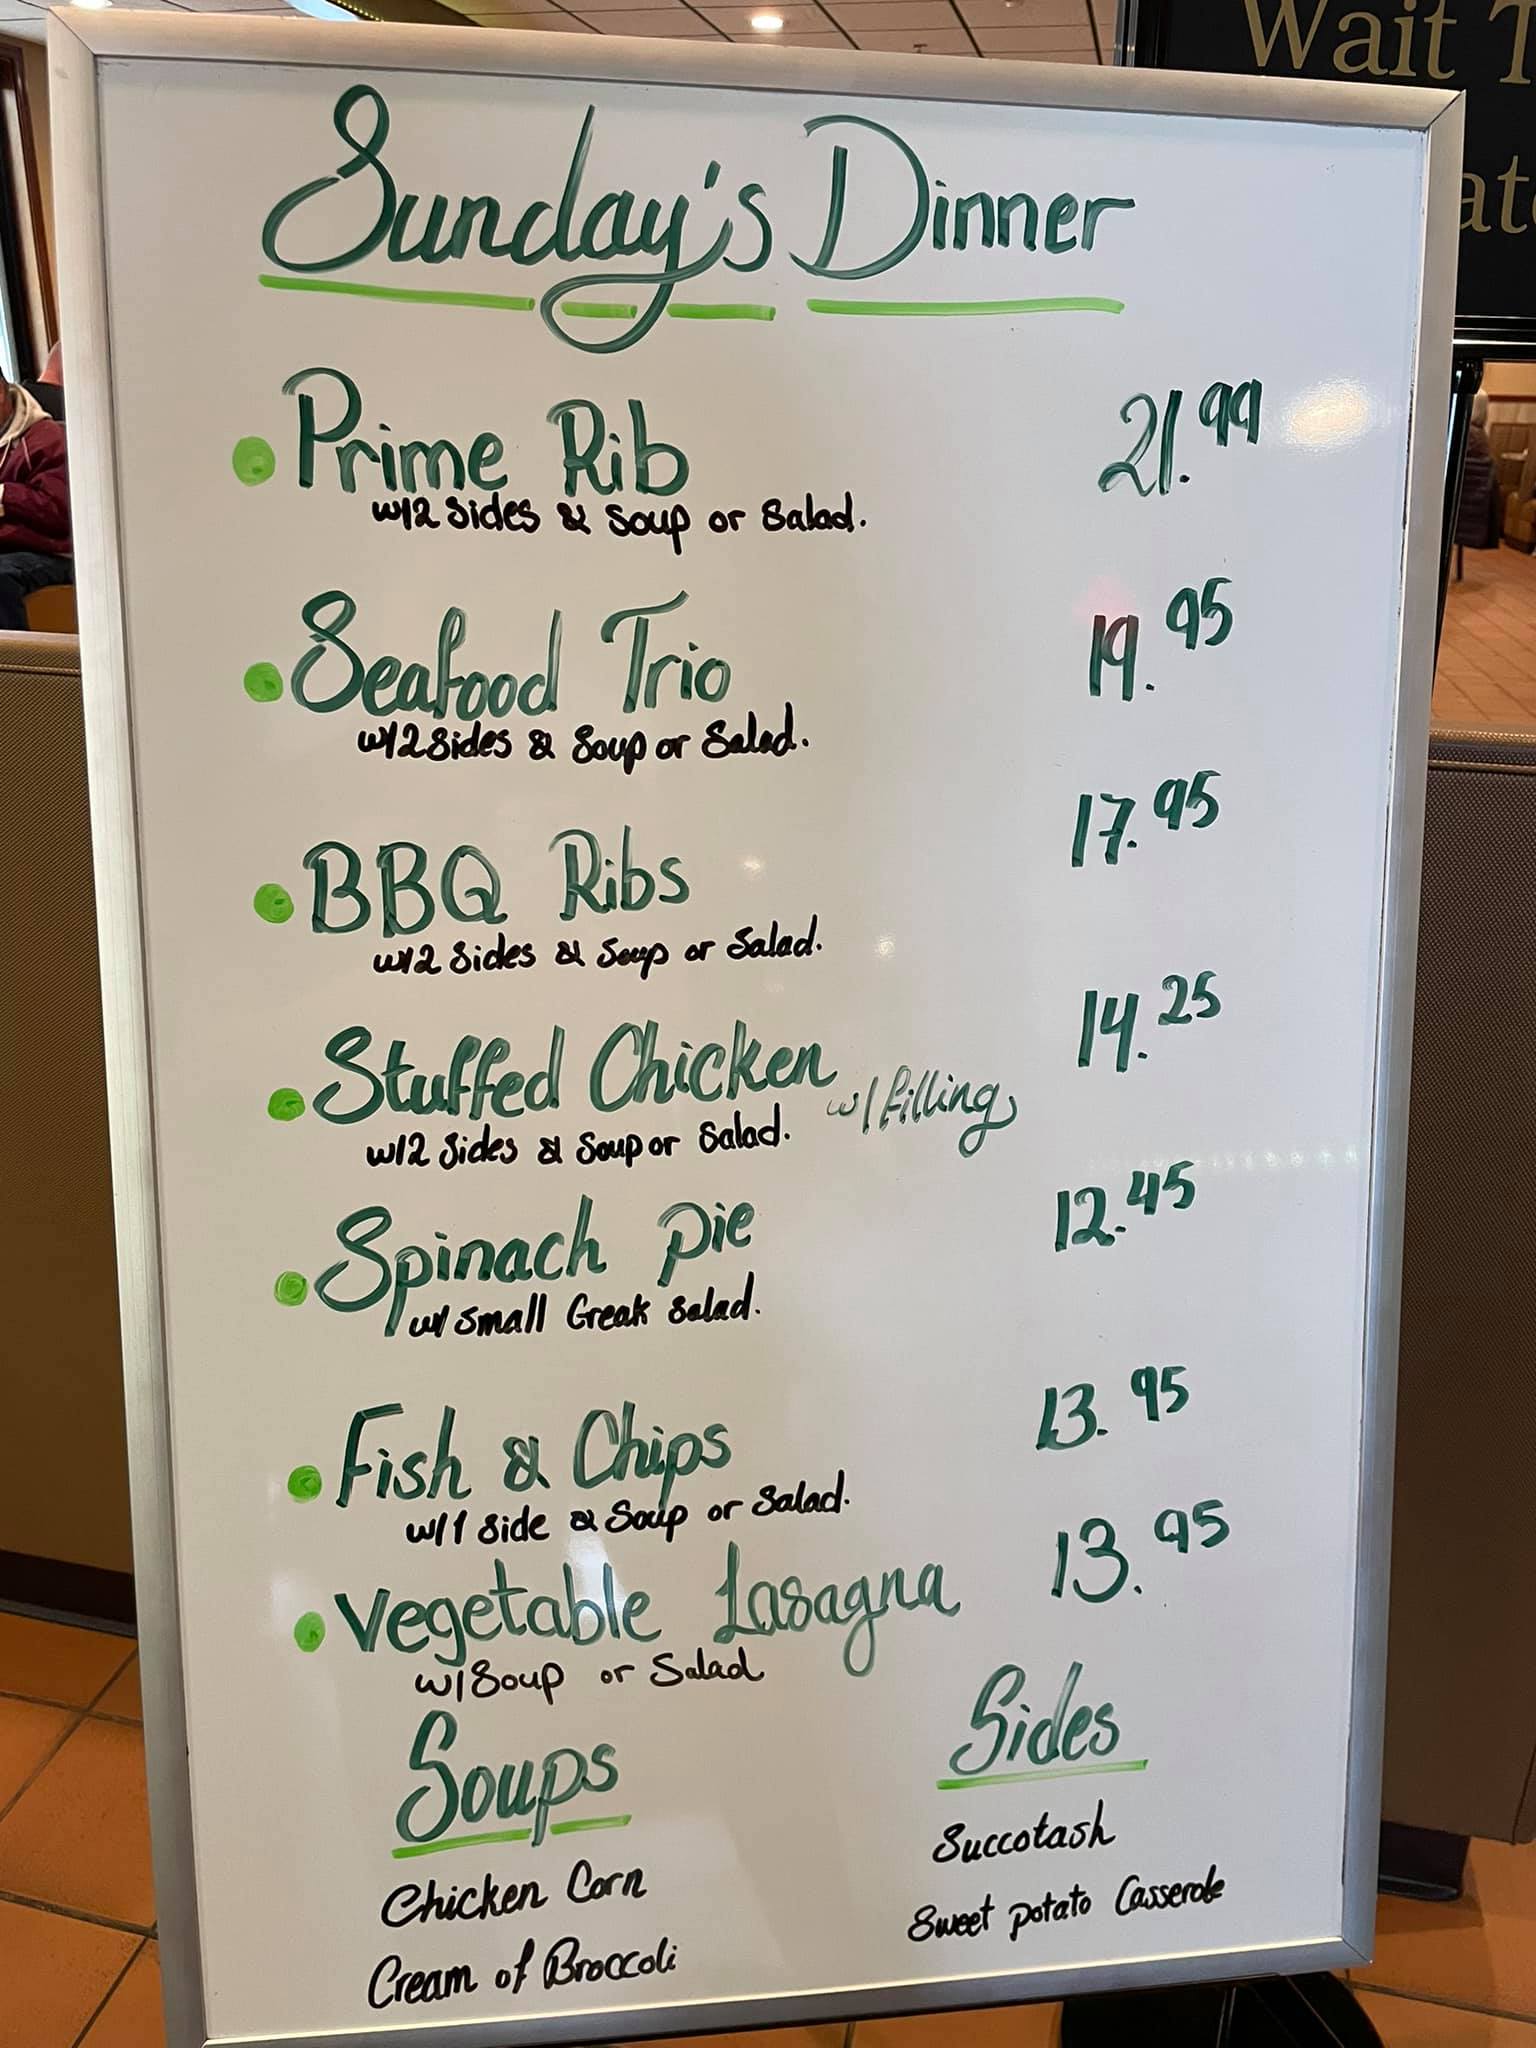 Wait T
at
Sunday's Dinner
• Prime Rib 21.99
w/2 Sides & Soup or Salad.
• Seafood Trio 19.95
w/2 Sides & Soup or Salad.
• BBQ Ribs 17.95
w/2 Sides & Soup or Salad.
• Stuffed Chicken w/ filling 14.25
w/2 Sides & Soup or Salad.
• Spinach Pie 12.45
w/ Small Greak Salad.
• Fish & Chips 13.95
w/1 Side & Soup or Salad.
• Vegetable Lasagna 13.95
w/ Soup or Salad
Soups
Chicken Corn
Cream of Broccoli
Sides
Succotash
Sweet Potato Casserole